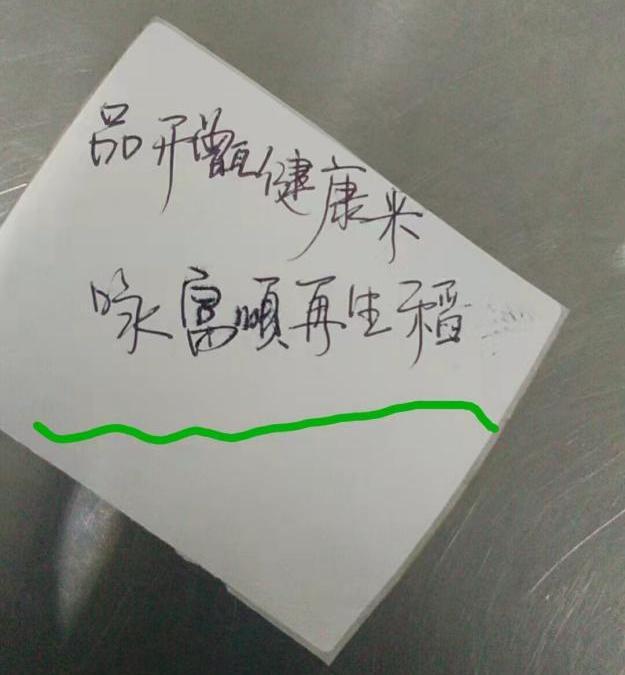 品开甑健康米
咏富顺再生稻